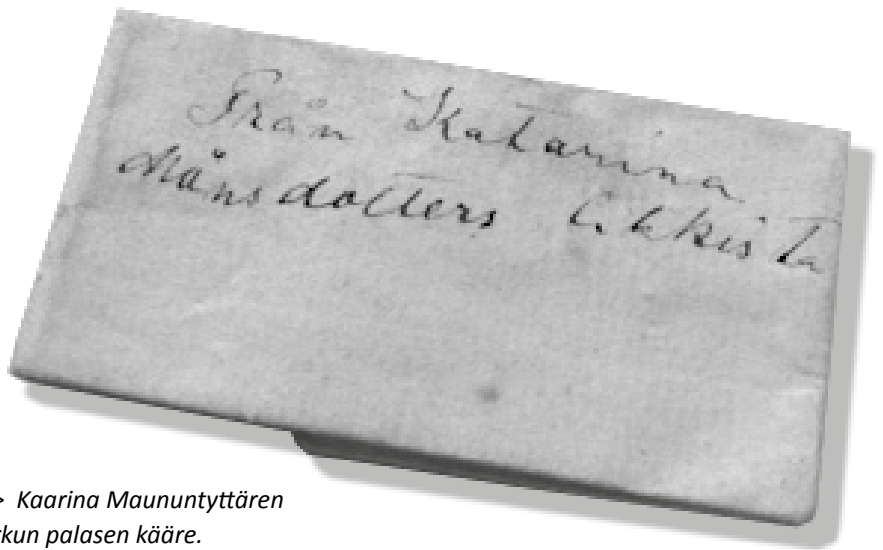 Från Katarina
Månsdotters likkista
> Kaarina Maununtyttären
rkun palasen kääre.